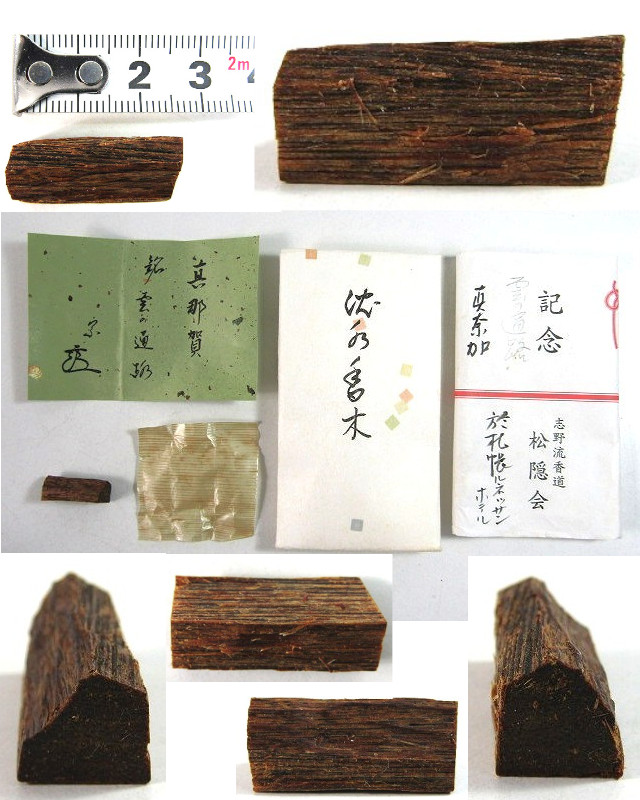 2 3 2m 4
真那賀
銘 雲の通路
宗
沈水香木
記念
雲通路
真奈加
志野流香道
松隠会
於札幌ルネッサンホテル